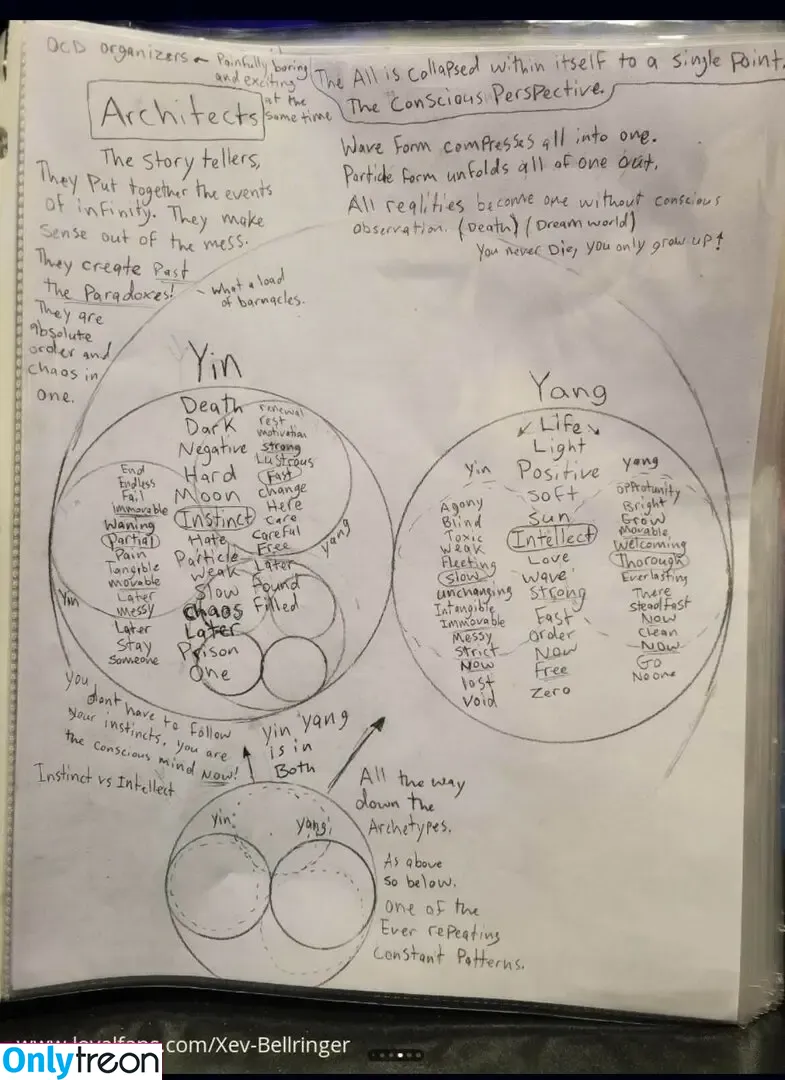 OCD organizers - Painfully boring
and exciting
at the
same time
Architects
The story tellers,
They Put together the events
of infinity. They make
Sense out of the mess.
They create Past
the Paradoxes!
- what a load
of barnacles.
They are
absolute
order and
chaos in
one.
The All is collapsed within itself to a single point.
The Conscious Perspective.
Wave Form compresses all into one.
Particle form unfolds all of one out.
All realities become one without conscious
observation. (Death) (Dream world)
You never Die, you only grow up!
Yin
Death
Dark
Negative
Hard
Moon
Instinct
Hate
Particle
Weak
Slow
Chaos
Later
Prison
One
renewal
rest
motivation
strong
Lustrous
Fast
change
Here
care
careful
Free
Later
Found
Filled
yang
End
Endless
Fail
Immovable
Waning
Partial
Pain
Tangible
movable
Later
Messy
Later
Stay
Someone
Yin
Yang
Life
Light
Positive
Soft
Sun
Intellect
Love
Wave
Strong
Fast
Order
Now
Free
Zero
yin
Agony
Blind
Toxic
Weak
Fleeting
Slow
unchanging
Intangible
Immovable
Messy
Strict
Now
lost
Void
yang
opprotunity
Bright
Grow
Movable
Welcoming
Thorough
Everlasting
There
Steadfast
Now
Clean
Now
Go
No one
You
dont have to follow
your instincts, you are
the conscious mind Now!
Instinct vs Intellect
yin yang
is in
Both
All the way
down the
Archetypes.
yin
yang
As above
so below.
one of the
Ever repeating
Constant Patterns.
www.loyalfans.com/Xev-Bellringer
Onlytreon